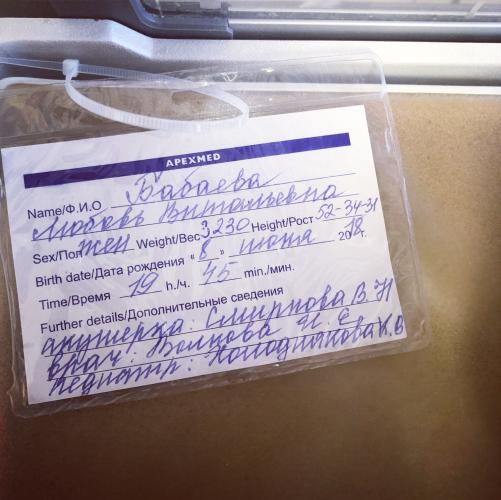 APEXMED
Name/Ф.И.О Бабаева
Любовь Витальевна
Sex/Пол жен Weight/Вес 3230 Height/Рост 52-34-31
Birth date/Дата рождения « 8 » июня 2018 г.
Time/Время 19 h./ч. 45 min./мин.
Further details/Дополнительные сведения
акушерка: Смирнова В. Н
врач: Волкова И. С
педиатр: К. В